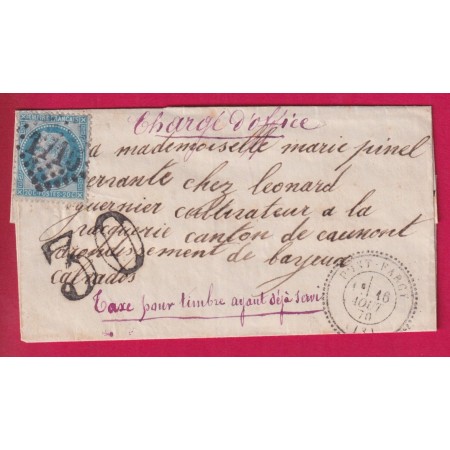 Chargé d'office
a mademoiselle marie pinel
servante chez leonard
guernier cultivateur a la
canton de caumont
arondissement de bayeux
calvados
30
Taxe pour timbre ayant déjà servi
16
AOUT
70